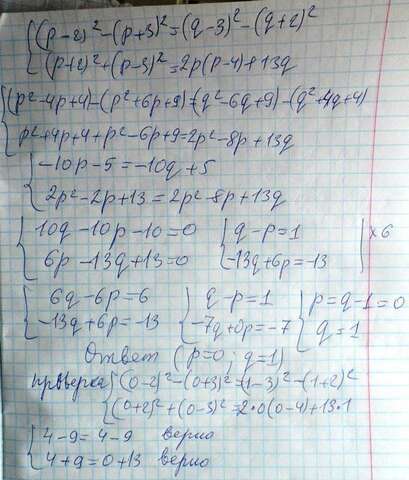 {(p-2)²-(p+3)²=(q-3)²-(q+2)²
{(p+2)²+(p-3)²=2p(p-4)+13q
{(p²-4p+4)-(p²+6p+9)=(q²-6q+9)-(q²+4q+4)
{p²+4p+4+p²-6p+9=2p²-8p+13q
{-10p-5=-10q+5
{2p²-2p+13=2p²-8p+13q
{10q-10p-10=0 {q-p=1 |×6
{6p-13q+13=0 {-13q+6p=-13
{6q-6p=6 {q-p=1 {p=q-1=0
{-13q+6p=-13 {-7q+0p=-7 {q=1
Ответ (p=0; q=1)
проверка {(0-2)²-(0+3)²=(1-3)²-(1+2)²
{(0+2)²+(0-3)²=2·0(0-4)+13·1
{4-9=4-9 верно
{4+9=0+13 верно